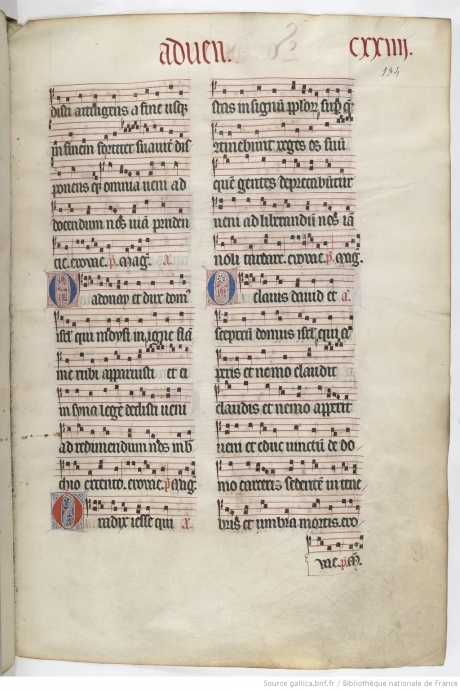 aduen.
cxxiiii.
134
disti attingens a fine usq;
in finem fortiter suauit dis
ponens q; omnia ueni ad
docendum nos uiã pruden
tie. euouae. p. Mag. a.
O adonay et dux dom9
isrł qui moysi in igne flã
me rubi apparuisti et ei
in syna legẽ dedisti ueni
ad redimendum nos in b
chio extento. euouae. p Mag.
O radix iesse qui a.
stas in signũ pplor sub q
continebunt reges os suũ
quẽ gentes deprecabũtur
ueni ad liberandũ nos iã
noli tardare. euouae. p. Mag.
O clauis dauid et a.
sceptrũ domus isrł qui a
peris et nemo claudit
claudis et nemo aperit
ueni et educ uinctũ de do
mo carceris sedentẽ in tene
bris et umbra mortis. euo
uae. p. M.
Source gallica.bnf.fr / Bibliothèque nationale de France